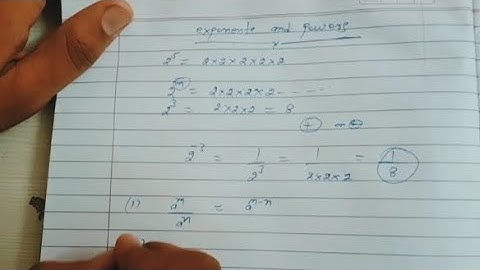 exponents and powers
2⁵ = 2×2×2×2×2
2ᵐ = 2×2×2×2-----
2³ = 2×2×2 = 8
2⁻³ = 1/2³ = 1/2×2×2 = 1/8
(1) aᵐ/aⁿ = aᵐ⁻ⁿ